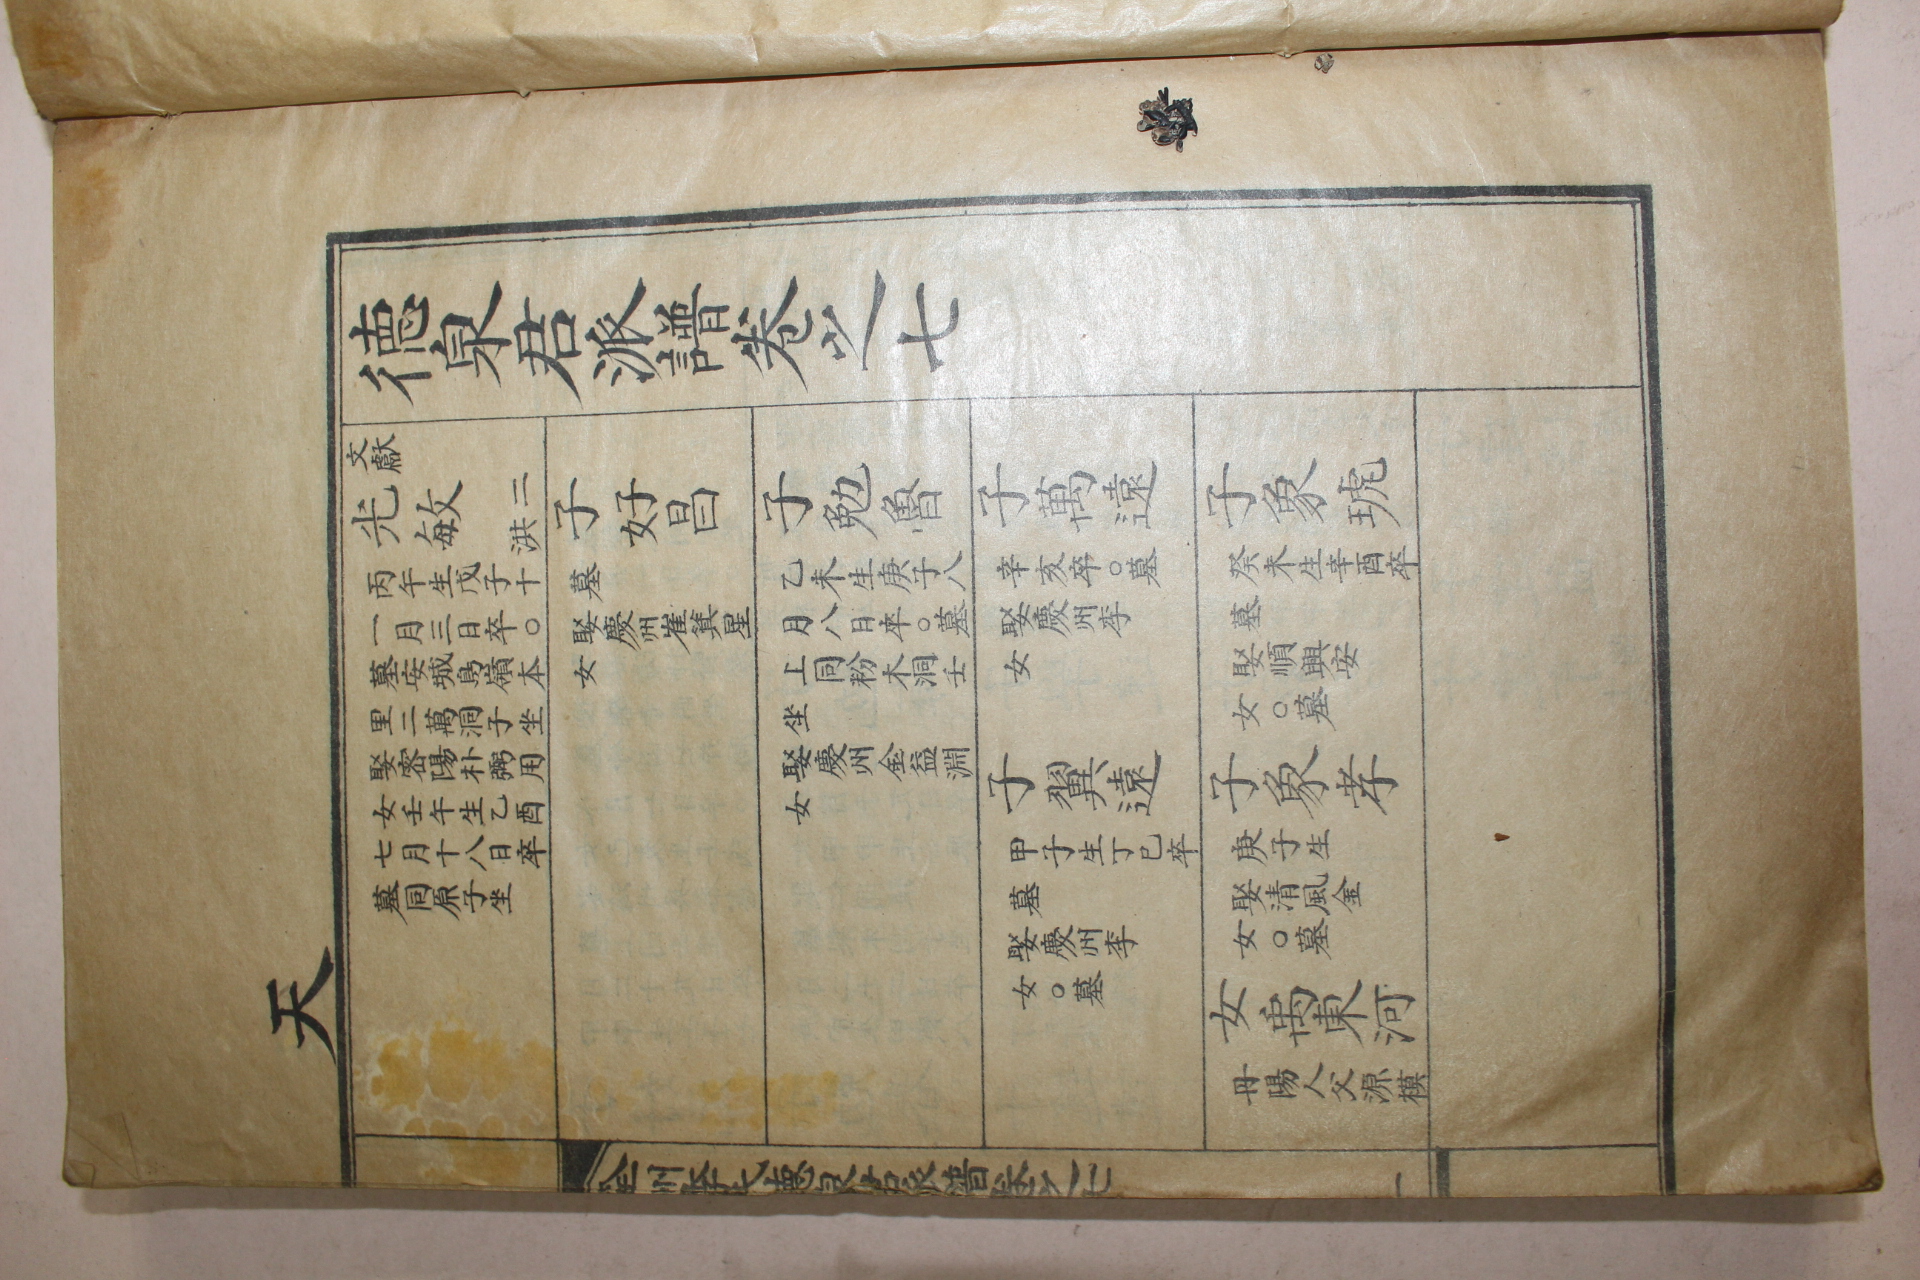 德泉君派譜卷之七
文獻
光敏
三
洪
丙午生戊子十
一月三日卒○
墓安城島嶺本
里二萬洞子坐
娶密陽朴弼用
女壬午生乙酉
七月十八日卒
墓同原子坐
子好昌
墓
娶慶州崔箕星
女
子勉魯
乙未生庚子八
月八日卒○墓
上同粉木洞壬
坐
娶慶州金益淵
女
子萬遠
辛亥卒○墓
娶慶州李
女
子翼遠
甲子生丁巳卒
墓
娶慶州李
女○墓
子象琥
癸未生辛酉卒
墓
娶順興安
女○墓
子象孝
庚子生
娶清風金
女○墓
女禹東河
丹陽人父源模
天
全州李氏德泉君派譜卷之七
一